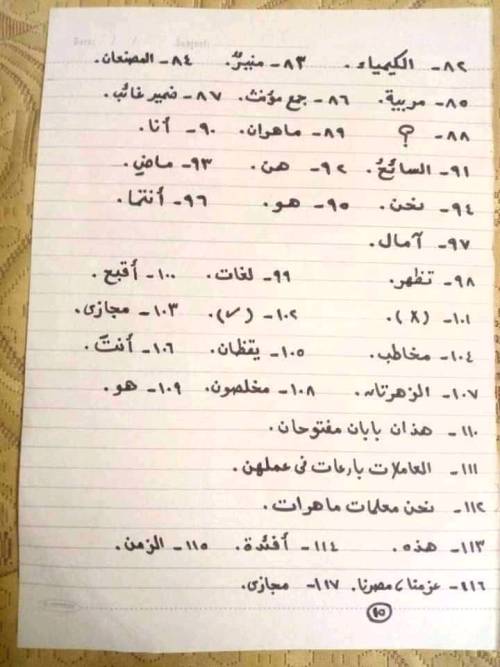 Date: / / Subject:
٨٢- الكيمياء. ٨٣- منيرٌ. ٨٤- المصنعان.
٨٥- مربية. ٨٦- جمع مؤنث. ٨٧- ضمير غائب.
٨٨- ؟ ٨٩- ماهران. ٩٠- أنا.
٩١- السائحُ. ٩٢- هن. ٩٣- ماضي.
٩٤- نحن. ٩٥- هو. ٩٦- أنتما.
٩٧- آمال.
٩٨- تظهر. ٩٩- لغات. ١٠٠- أقبع.
١٠١- (X). ١٠٢- (✓). ١٠٣- مجازى.
١٠٤- مخاطب. ١٠٥- يقظان. ١٠٦- أنتَ.
١٠٧- الزهرتان. ١٠٨- مخلصون. ١٠٩- هو.
١١٠- هذان بابان مفتوحان.
١١١- العاملات بارعات فى عملهن.
١١٢- نحن معلمات ماهرات.
١١٣- هذه. ١١٤- أفئدة. ١١٥- الزمن.
١١٦- عزمنا، مصرنا. ١١٧- مجازى.
١٥